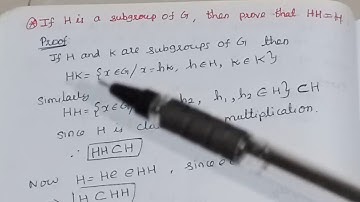 * If H is a subgroup of G, then prove that HH=H
Proof
If H and K are subgroups of G then
HK= {x∈G/ x=hk, h∈H, k∈K}
Similarly
HH= {x∈G/ h2, h1,h2∈H} ⊂H
Since H is multiplication.
∴ HH⊂H
Now H=He∈HH, since
H⊂HH